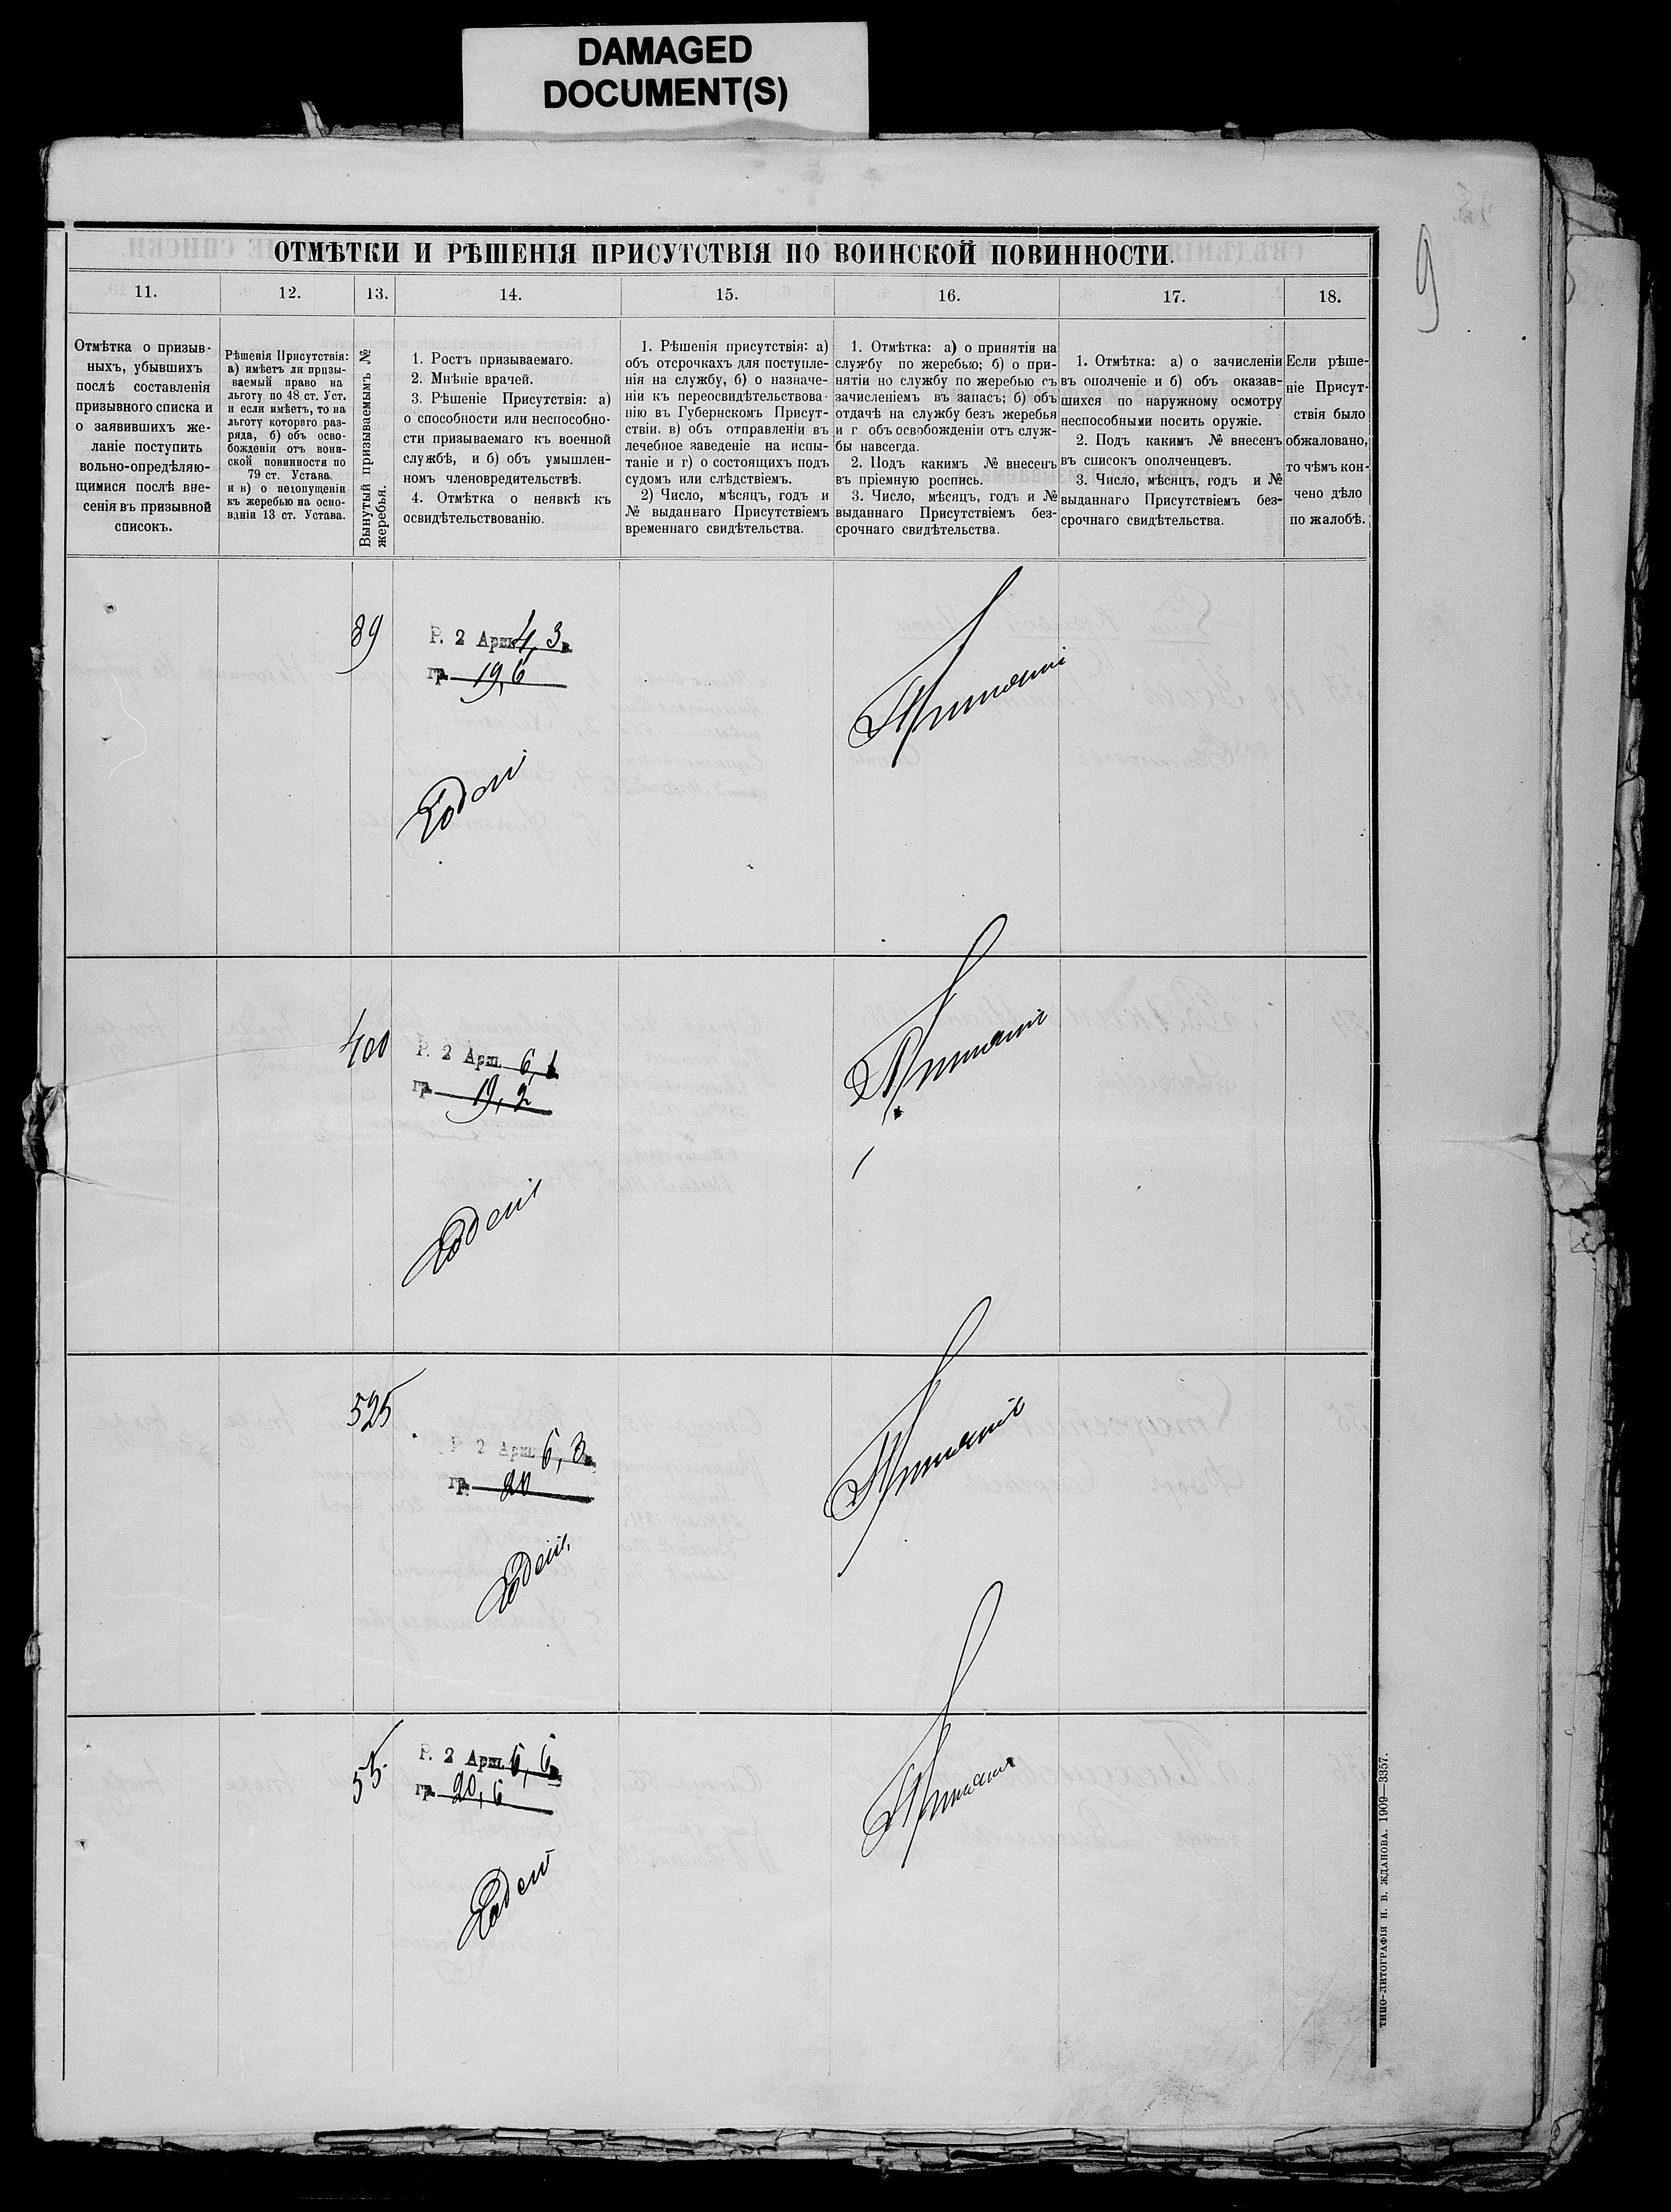 DAMAGED
DOCUMENT(S)
9
ОТМѢТКИ И РѢШЕНІЯ ПРИСУТСТВІЯ ПО ВОИНСКОЙ ПОВИННОСТИ.
11.
12.
13.
14.
15.
16.
17.
18.
Отмѣтка о призыв-
ныхъ, убывшихъ
послѣ составленія
призывного списка и
о заявившихъ же-
ланіе поступить
вольно-опредѣляю-
щимися послѣ вне-
сенія въ призывной
списокъ.
Рѣшенія Присутствія:
а) имѣетъ ли призы-
ваемый право на
льготу по 48 ст. Уст.
и если имѣетъ, то на
льготу котораго раз-
ряда, б) объ осво-
божденіи отъ воин-
ской повинности по
79 ст. Устава.
и в) о недопущеніи
къ жеребью на осно-
ваніи 13 ст. Устава.
Вынутый призываемымъ №
жеребья.
1. Ростъ призываемаго.
2. Мнѣніе врачей.
3. Рѣшеніе Присутствія: а)
о способности или неспособно-
сти призываемаго къ военной
службѣ, и б) объ умышлен-
номъ членовредительствѣ.
4. Отмѣтка о неявкѣ къ
освидѣтельствованію.
1. Рѣшенія присутствія: а)
объ отсрочкахъ для поступле-
нія на службу, б) о назначе-
ніи къ переосвидѣтельствова-
нію въ Губернскомъ Присут-
ствіи. в) объ отправленіи въ
лечебное заведеніе на испы-
таніе и г) о состоящихъ подъ
судомъ или слѣдствіемъ.
2) Число, мѣсяцъ, годъ и
№ выданнаго Присутствіемъ
временнаго свидѣтельства.
1. Отмѣтка: а) о принятіи на
службу по жеребью; б) о при-
нятіи но службу по жеребью съ
зачисленіемъ въ запасъ; б) объ
отдачѣ на службу безъ жеребья
и г объ освобожденіи отъ служ-
бы навсегда.
2. Подъ какимъ № внесенъ
въ пріемную роспись.
3. Число, мѣсяцъ, годъ и №
выданнаго Присутствіемъ без-
срочнаго свидѣтельства.
1. Отмѣтка: а) о зачисленіи
въ ополченіе и б) объ оказав-
шихся по наружному осмотру
неспособными носить оружіе.
2. Подъ какимъ № внесенъ
въ списокъ ополченцевъ.
3. Число, мѣсяцъ, годъ и №
выданнаго Присутствіемъ без-
срочнаго свидѣтельства.
Если рѣше-
ніе Присут-
ствія было
обжаловано,
то чѣмъ кон-
чено дѣло
по жалобѣ.
89
Р. 2 Арш. 4,3 в.
гр. 19,6
Годенъ
Принятъ
400
Р. 2 Арш. 6,1
гр. 19,2
Годенъ
Принятъ
525
Р. 2 Арш. 6,3 в.
гр. 20
Годенъ
Принятъ
55
Р. 2 Арш. 6,6 в.
гр. 20,6
Годенъ
Принятъ
ТИПО-ЛИТОГРАФІЯ Н. В. ЖДАНОВА. 1909—3357.